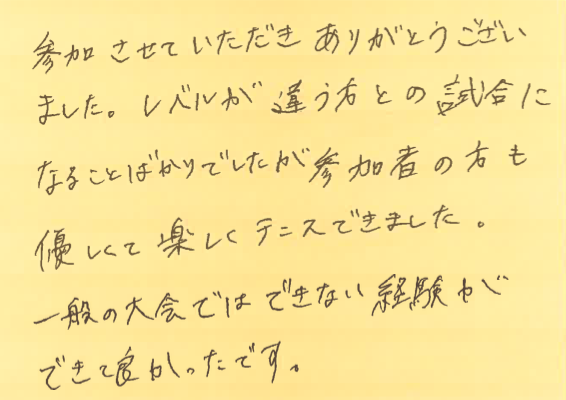 参加させていただきありがとうござい
ました。レベルが違う方との試合に
なることばかりでしたが参加者の方も
優しくて楽しくテニスできました。
一般の大会ではできない経験が
できて良かったです。